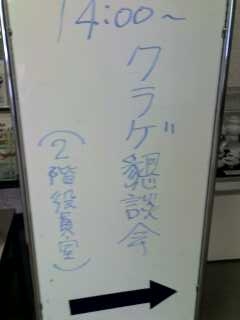 14:00～
クラゲ懇談会
(2階役員室)